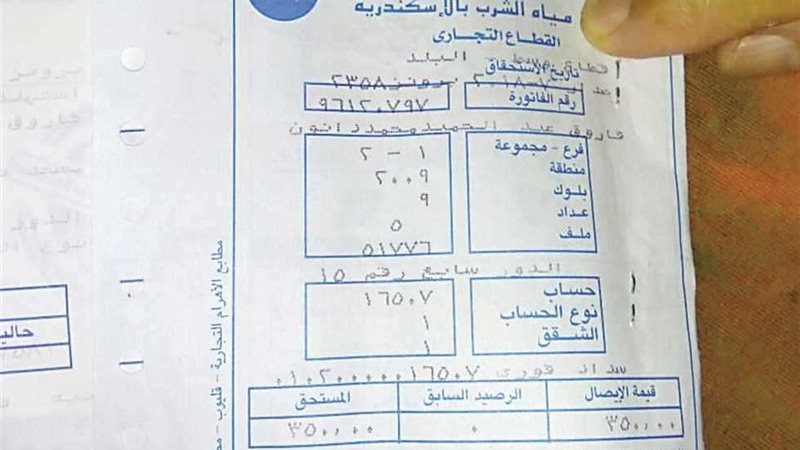 مياه الشرب بالإسكندرية
القطاع التجارى
قطاع وسط البلد
تاريخ الإستحقاق
رقم الفاتورة
٩٦١٢٠٧٩٧
فاروق عبد الحميد محمد
فرع - مجموعة
١ - ٢
منطقة
٢٠٠٩
بلوك
٩
عداد
٥
ملف
٥١٧٧٦
الدور سابع رقم ١٥
حساب
١٦٥٠٧
نوع الحساب
١
الشقق
١
سداد فورى ٠١٠٢٠٠٠٠٠٠١٦٥٠٧
قيمة الإيصال الرصيد السابق المستحق
٣٥٠,٠٠ ٠ ٣٥٠,٠٠
مطابع الأهرام التجارية - قليوب -
حالي